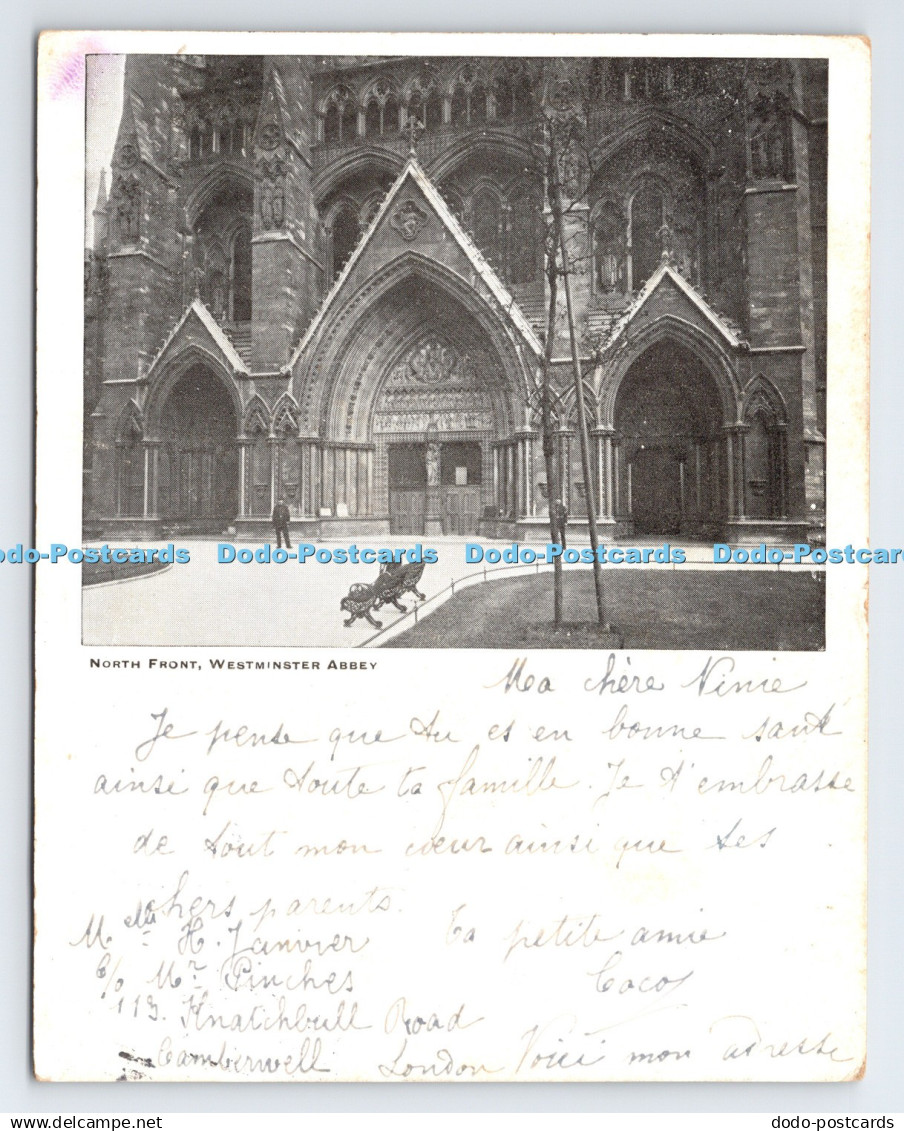 Dodo-Postcards Dodo-Postcards Dodo-Postcards Dodo-Postcards
North Front, Westminster Abbey
Ma chère Ninie
Je pense que tu es en bonne santé
ainsi que toute ta famille. Je t'embrasse
de tout mon cœur ainsi que tes
chers parents.
Ta petite amie
Coco
Melle H. Janvier
c/o Mr Pinches
113. Knatchbull Road
Camberwell London
Voici mon adresse
dodo-postcards
dodo-postcards.com